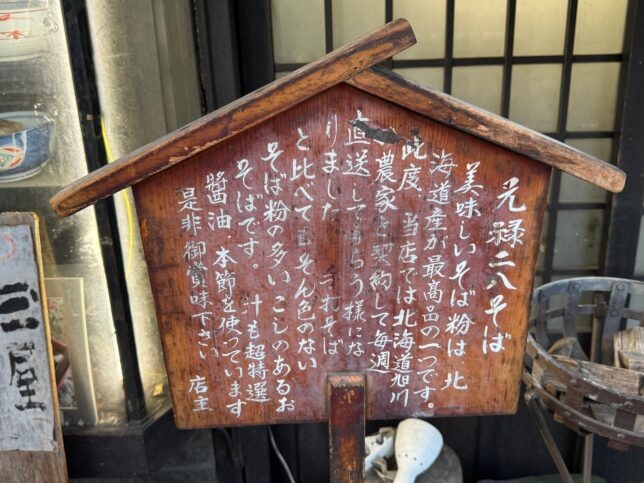 元禄二八そば
美味しいそば粉は北
海道産が最高品の一つです。
此度、当店では北海道旭川
農家と契約して毎週
直送してもらう様にな
りました。手打そば
と比べてもそん色のない
そば粉の多いこしのあるお
そばです。汁も超特選
醤油、本節を使っています
是非御賞味下さい 店主